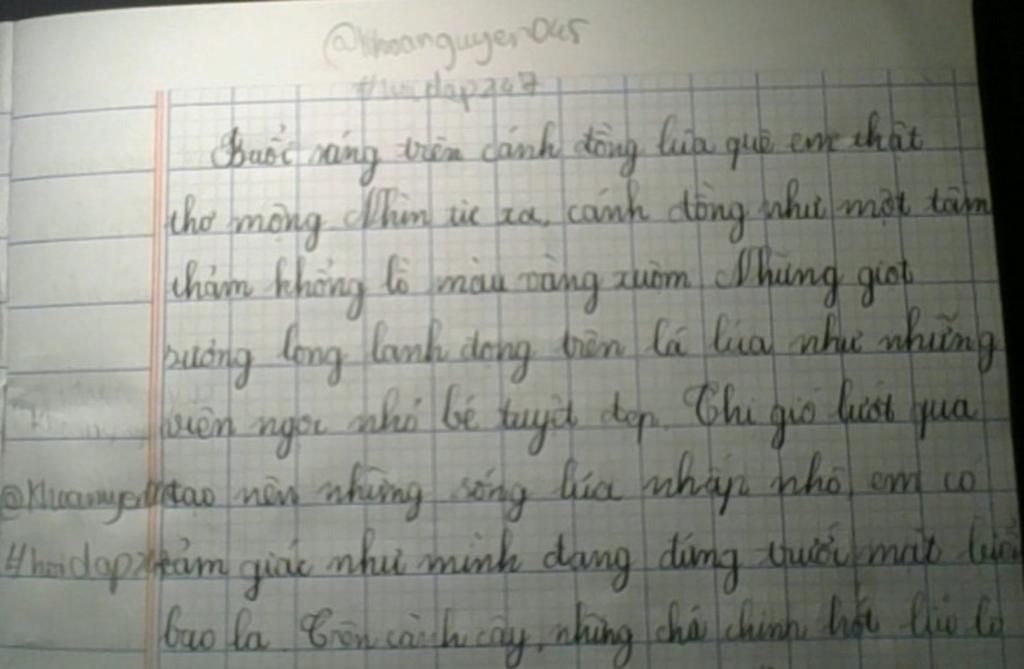 @khoanguyen045
#hoidap247
Buổi sáng trên cánh đồng lúa quê em thật
thơ mộng Nhìn từ xa, cánh đồng như một tấm
thảm khổng lồ màu vàng xuộm Những giọt
sương long lanh đọng trên lá lúa như những
viên ngọc nhỏ bé tuyệt đẹp. Khi gió lướt qua
tạo nên những sóng lúa nhấp nhô, em có
#hoidap cảm giác như mình đang đứng trước mặt
bao la. Trên cành cây, những chú chim hót líu lo